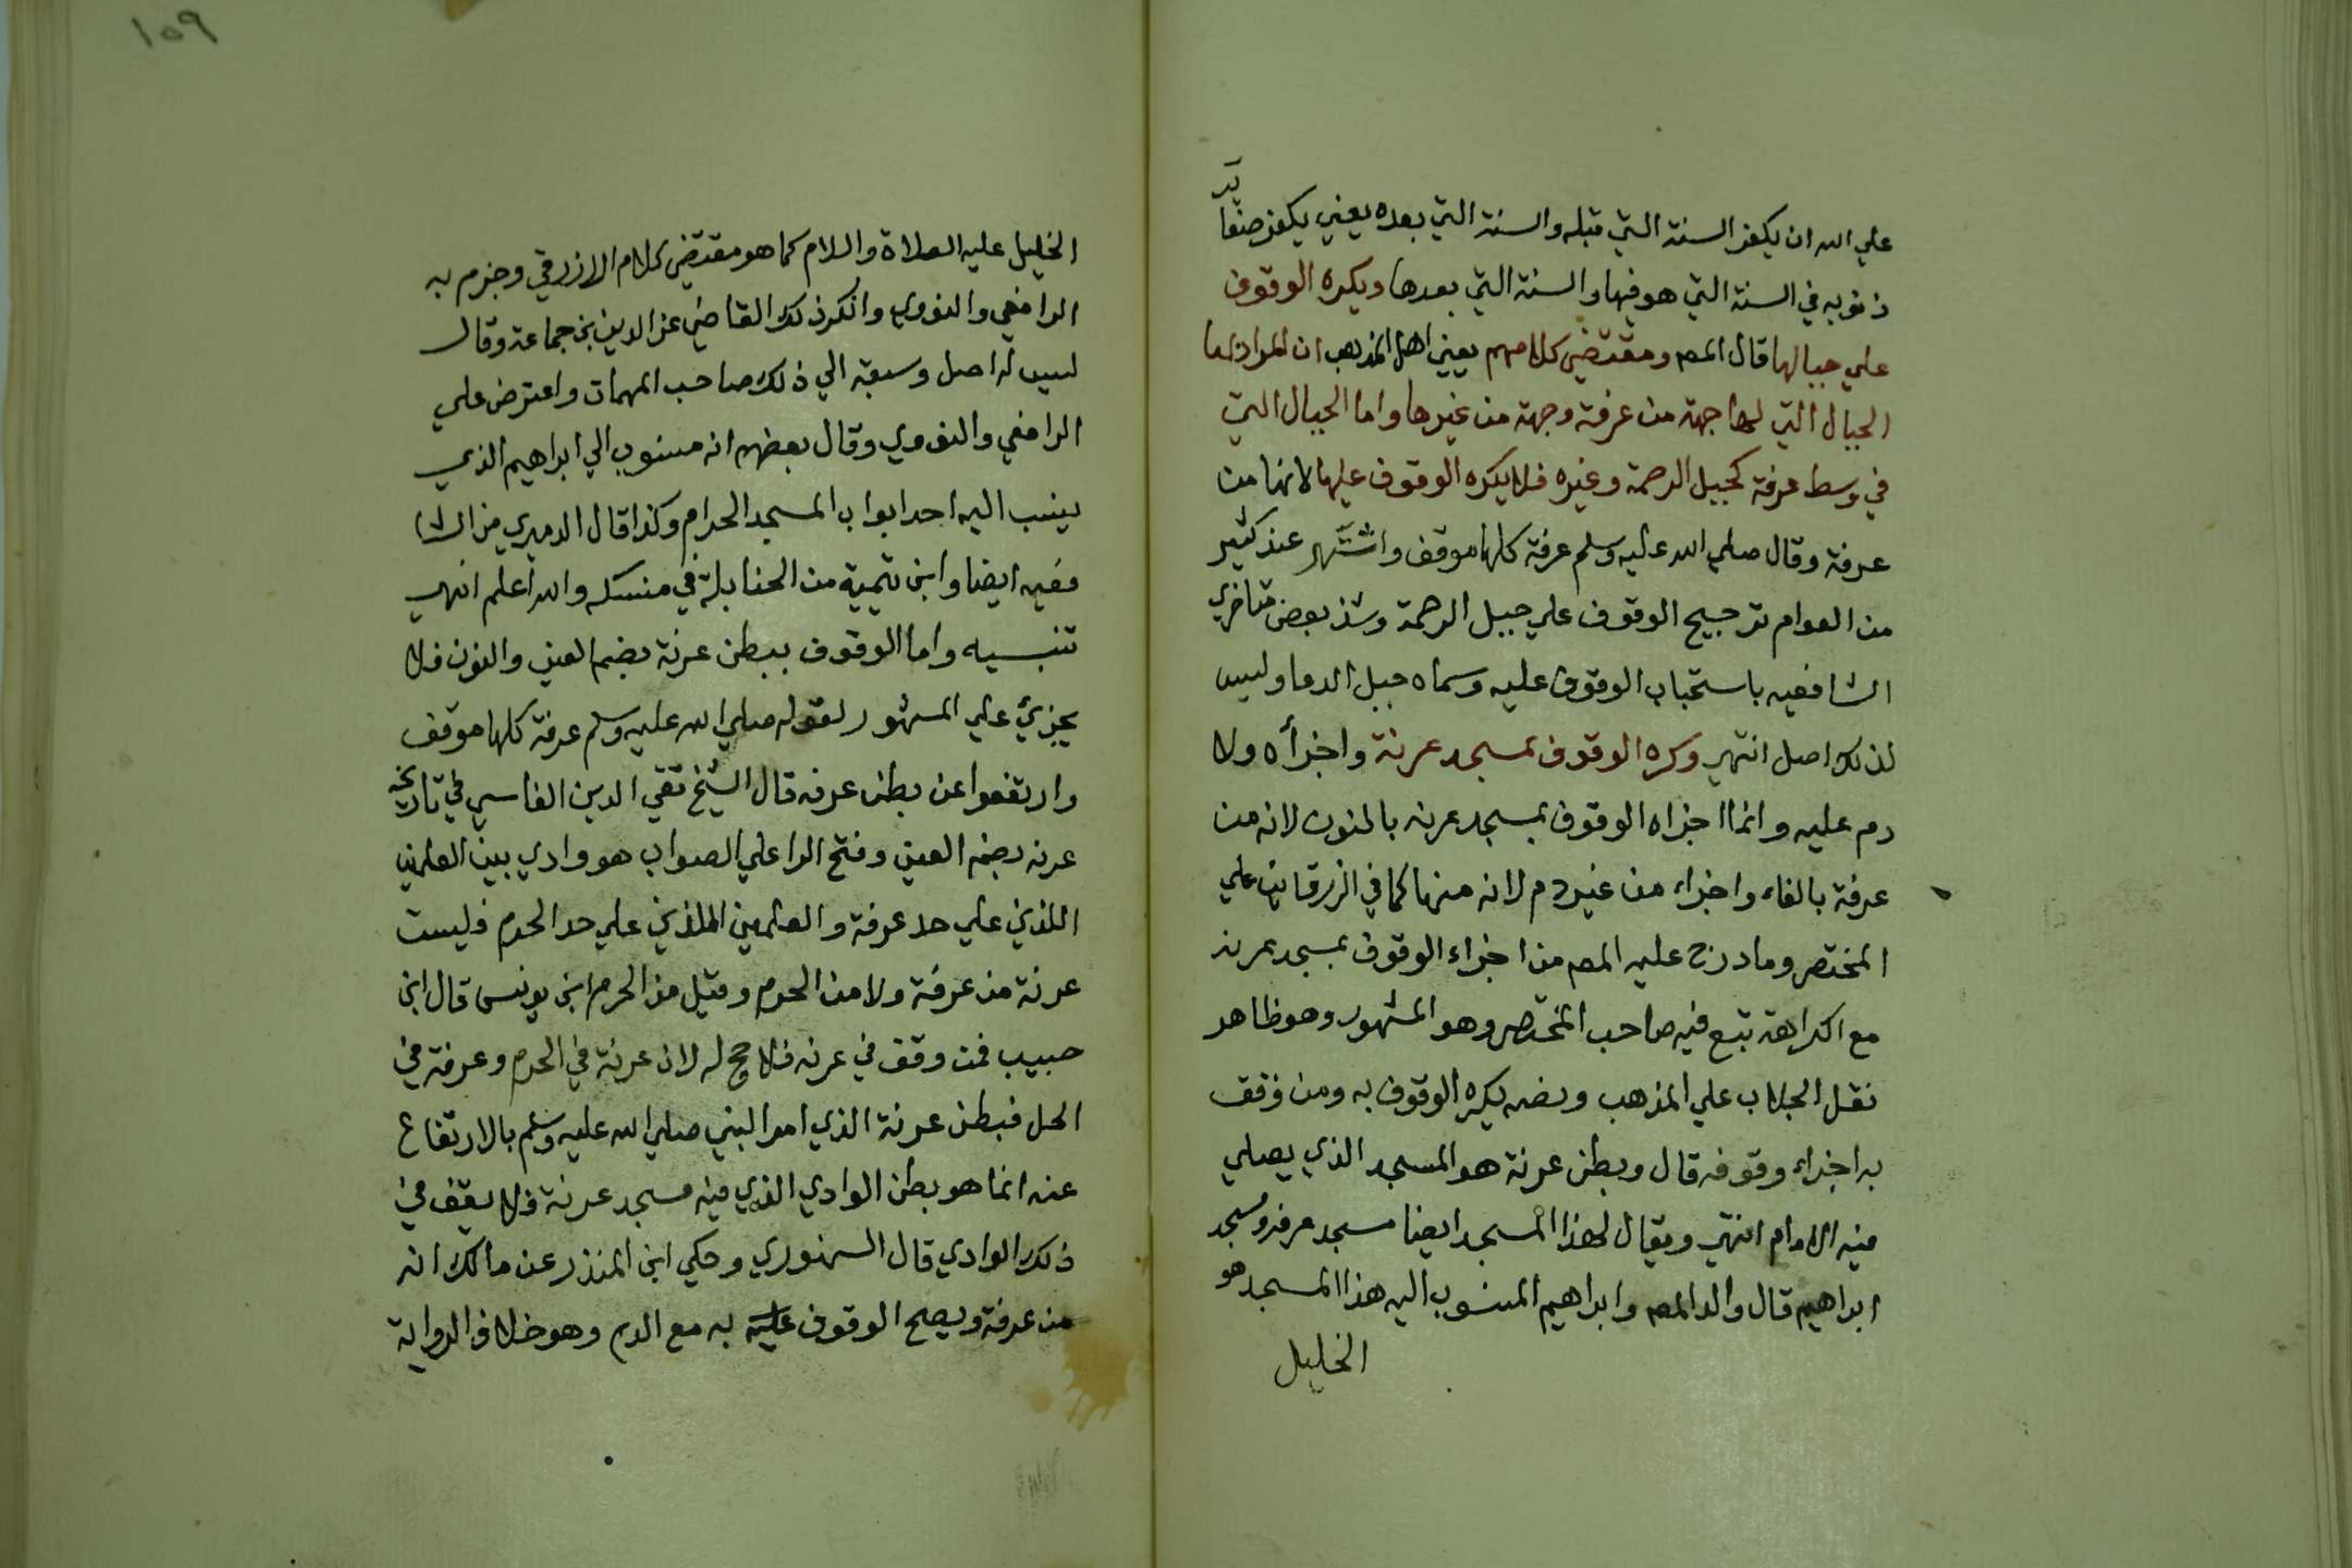 علي الله ان يكفر السنة التي قبله والسنة التي بعده يعني يكفر صغائر
ذنوبه في السنة التي هو فيها والسنة التي بعدها ويكره الوقوف
علي جبالها قال المص ومقتضي كلامهم يعني اهل المذهب ان المراد بها
الجبال التي لها جهة من عرفة وجهة من غيرها واما الجبال التي
في وسط عرفة كجبل الرحمة وغيره فلا يكره الوقوف عليها لانها من
عرفة وقال صلي الله عليه وسلم عرفة كلها موقف واشتهر عند كثير
من العوام ترجيح الوقوف علي جبل الرحمة وشذ بعض متاخري
الشافعيه باستحباب الوقوف عليه وسماه جبل الدعا وليس
لذلك اصل انتهي وكره الوقوف بمسجد عرنة واجزأه ولا
دم عليه وانما اجزاه الوقوف بمسجد عرنه بالنون لانه من
عرفة بالفاء واجزاء من غير دم لانه منها كما في الزرقاني علي
المختصر وما درج عليه المص من اجزاء الوقوف بمسجد عرنه
مع اكراهة تبع فيه صاحب المختصر وهو المشهور وهو ظاهر
نقل الجلاب علي المذهب ونصه يكره الوقوف به ومن وقف
به اجزاء وقوفه قال وبطن عرنة هو المسجد الذي يصلي
فيه الامام انتهي ويقال لهذا المسجد ايضا مسجد عرفه ومسجد
ابراهيم قال والد المص وابراهيم المنسوب اليه هذا المسجد هو
الخليل
١٥٩
الخليل عليه الصلاة والسلام كما هو مقتضي كلام الازرقي وجزم به
الرافعي والنووي وانكر ذلك القاضي عز الدين بن جماعة وقال
ليس له اصل وسبقه الي ذلك صاحب المهمات واعترض علي
الرافعي والنووي وقال بعضهم انه منسوب الي ابراهيم الذي
ينسب اليه احد ابواب المسجد الحرام وكذا قال الدميري من الشا
فعيه ايضا وابن تيمية من الحنابلة في منسكه والله اعلم انتهي
تنبيه واما الوقوف ببطن عرنة بضم العين والنون فلا
يجزي علي المشهور لقوله صلي الله عليه وسلم عرفة كلها موقف
وارتفعوا عن بطن عرنه قال الشيخ تقي الدين الفاسي في تاريخه
عرنه بضم العين وفتح الرا علي الصواب هو وادي بين العلمين
اللذين علي حد عرفة والعلمين اللذين علي حد الحرم فليست
عرنة من عرفة ولا من الحرم وقيل من الحرم ابن يونس قال ابن
حبيب فمن وقف في عرنه فلا حج له لان عرنة في الحرم وعرفة في
الحل فبطن عرنة الذي امر النبي صلي الله عليه وسلم بالارتفاع
عنه انما هو بطن الوادي الذي فيه مسجد عرنة فلا يقف في
ذلك الوادي قال السنهوري وحكي ابن المنذر عن مالك انه
من عرفة ويصح الوقوف عليه به مع الدم وهو خلاف الرواية